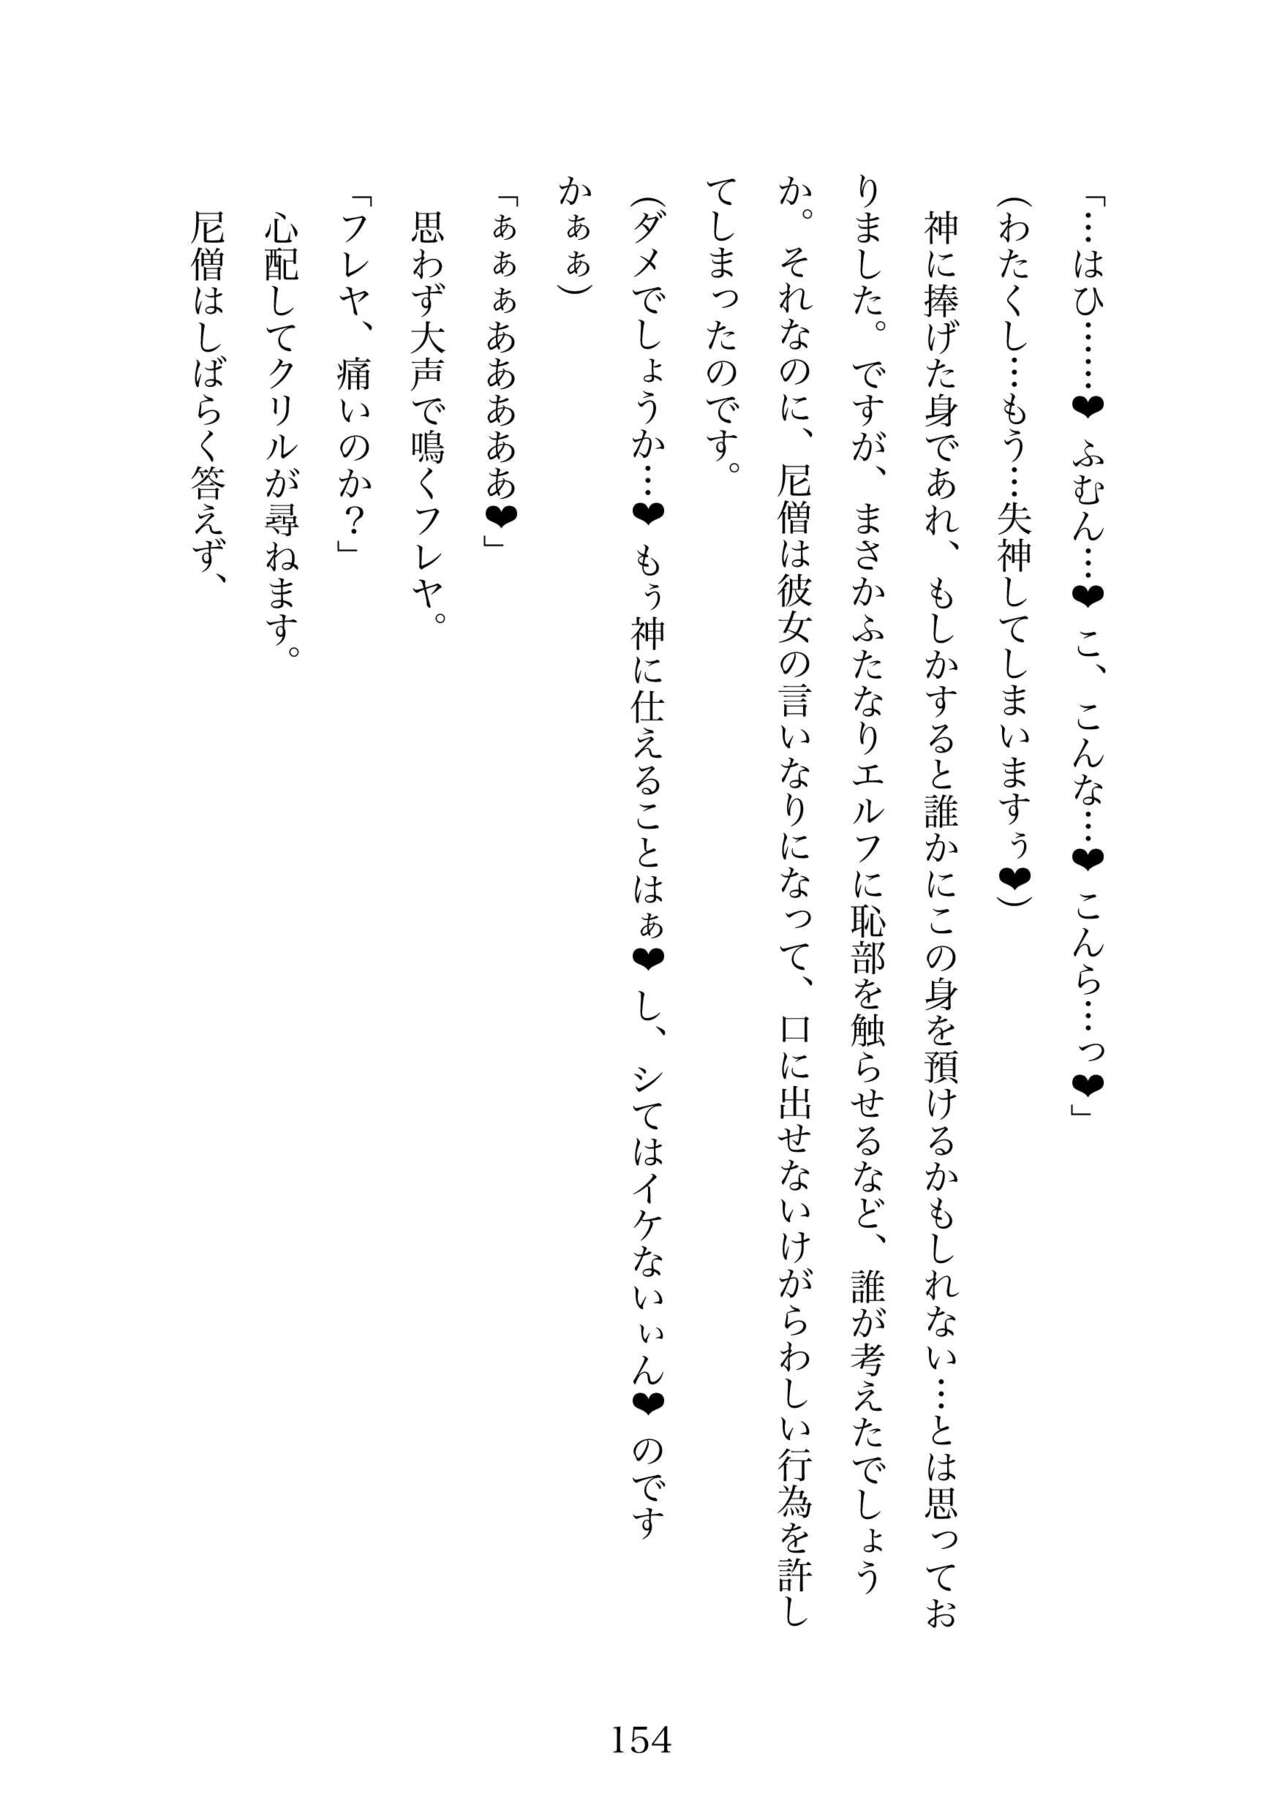 「…はひ……❤ ふむん…❤ こ、こんな…❤ こんら…っ❤」
(わたくし…もう…失神してしまいますぅ❤)
　神に捧げた身であれ、もしかすると誰かにこの身を預けるかもしれない…とは思ってお
りました。ですが、まさかふたなりエルフに恥部を触らせるなど、誰が考えたでしょう
か。それなのに、尼僧は彼女の言いなりになって、口に出せないけがらわしい行為を許し
てしまったのです。
(ダメでしょうか…❤ もぅ神に仕えることはぁ❤ し、シてはイケないぃん❤ のです
かぁぁ)
「ぁぁぁあああああ❤」
　思わず大声で鳴くフレヤ。
「フレヤ、痛いのか？」
　心配してクリルが尋ねます。
　尼僧はしばらく答えず、
154